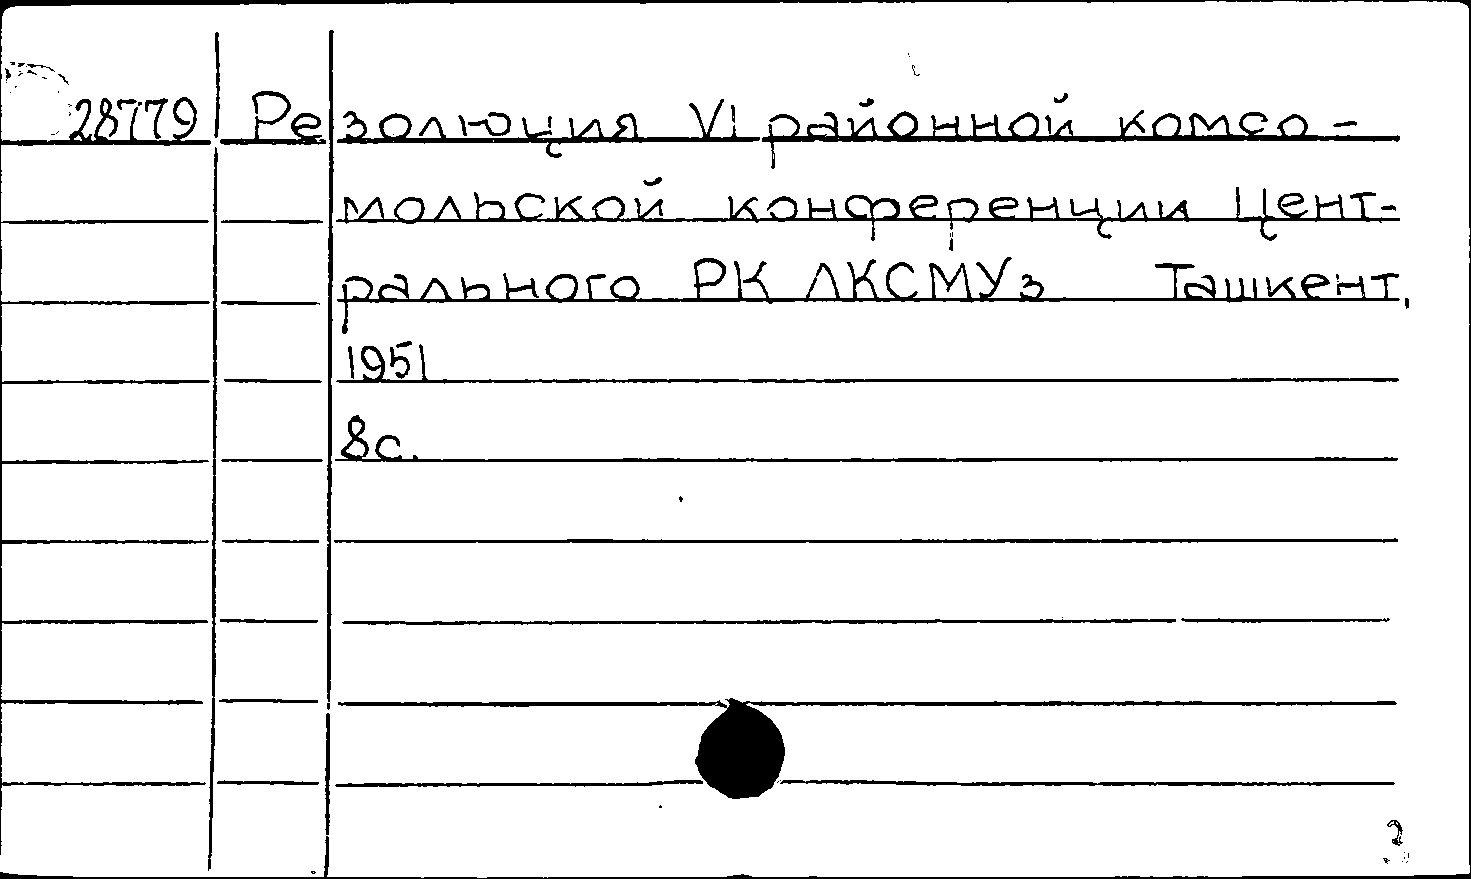 28779 Резолюция VI районной комсо-
мольской конференции Цент-
рального РК ЛКСМУз Ташкент,
1951
8с.